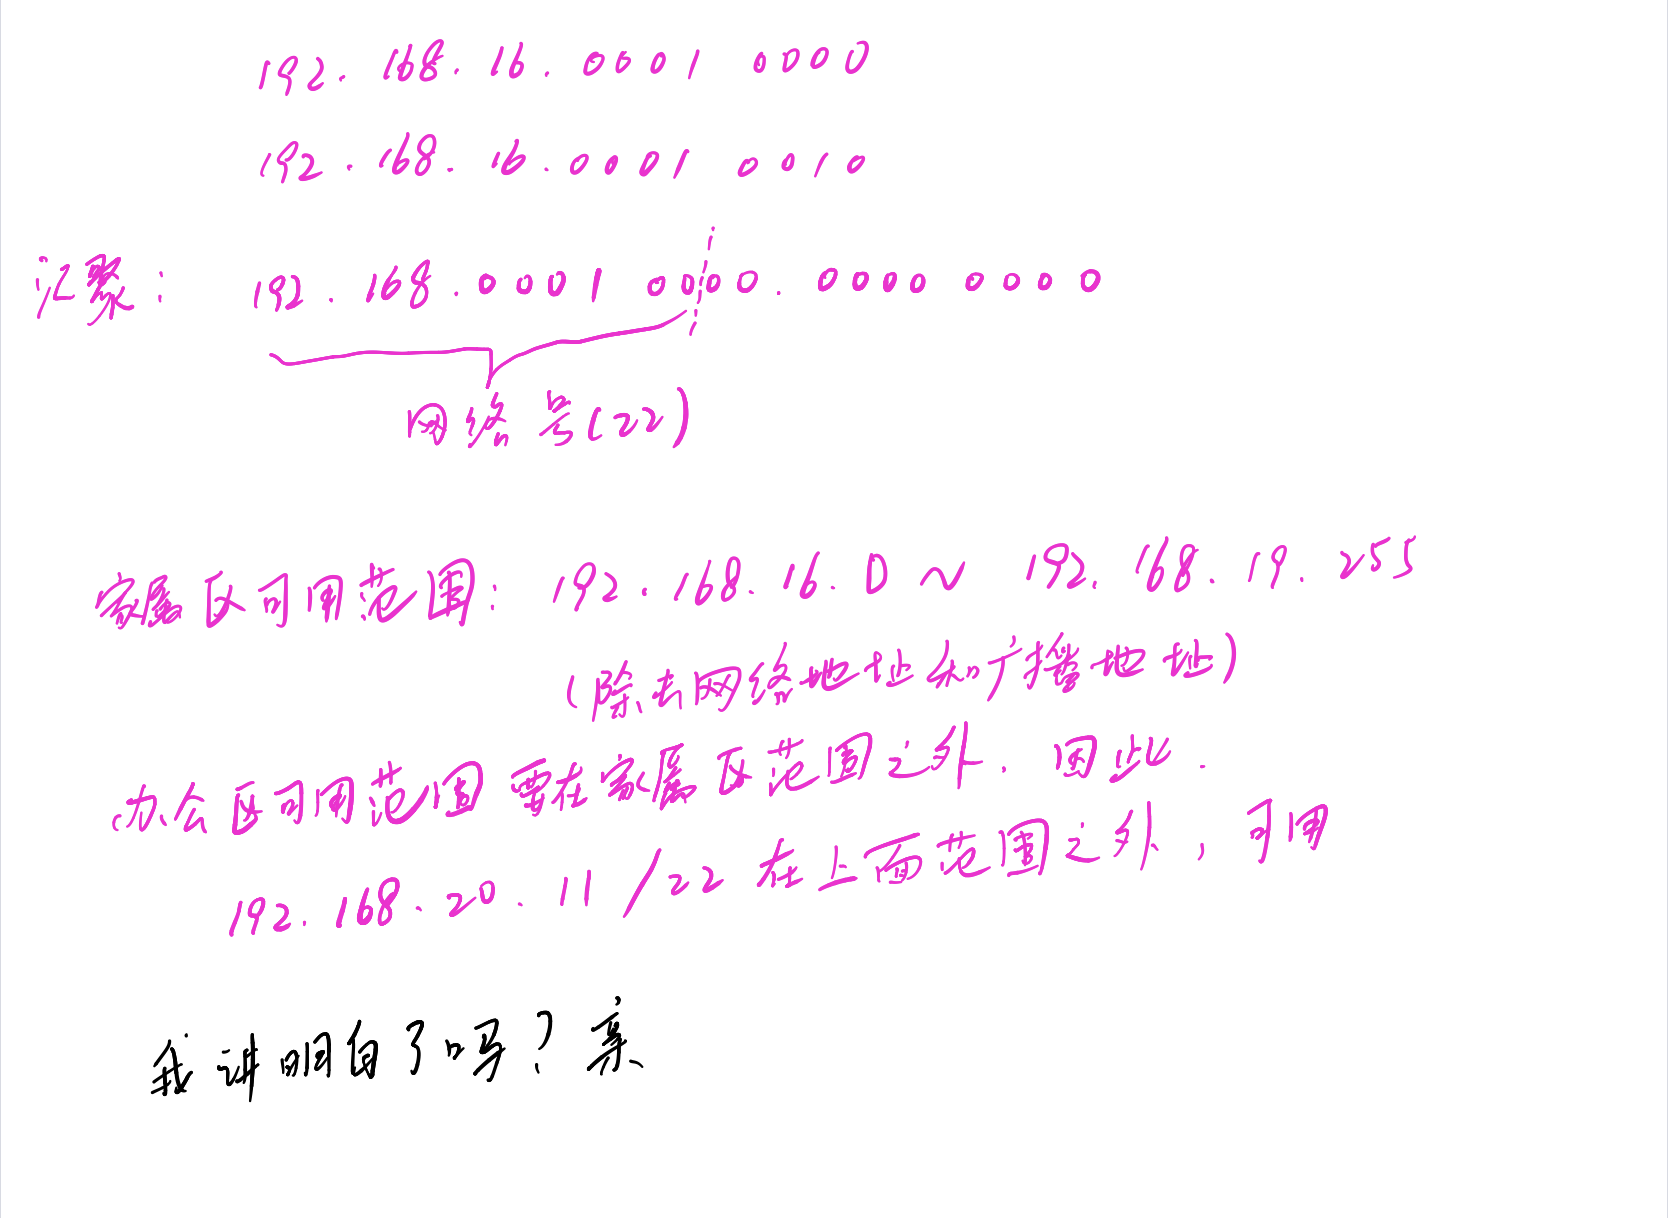 192.168.16.0001 0000
192.168.16.0001 0010
汇聚: 192.168.0001 0000.0000 0000
网络号(22)
家属区可用范围: 192.168.16.0 ~ 192.168.19.255
(除去网络地址和广播地址)
办公区可用范围要在家属区范围之外.因此.
192.168.20.11/22 在上面范围之外,可用
我讲明白了吗?亲